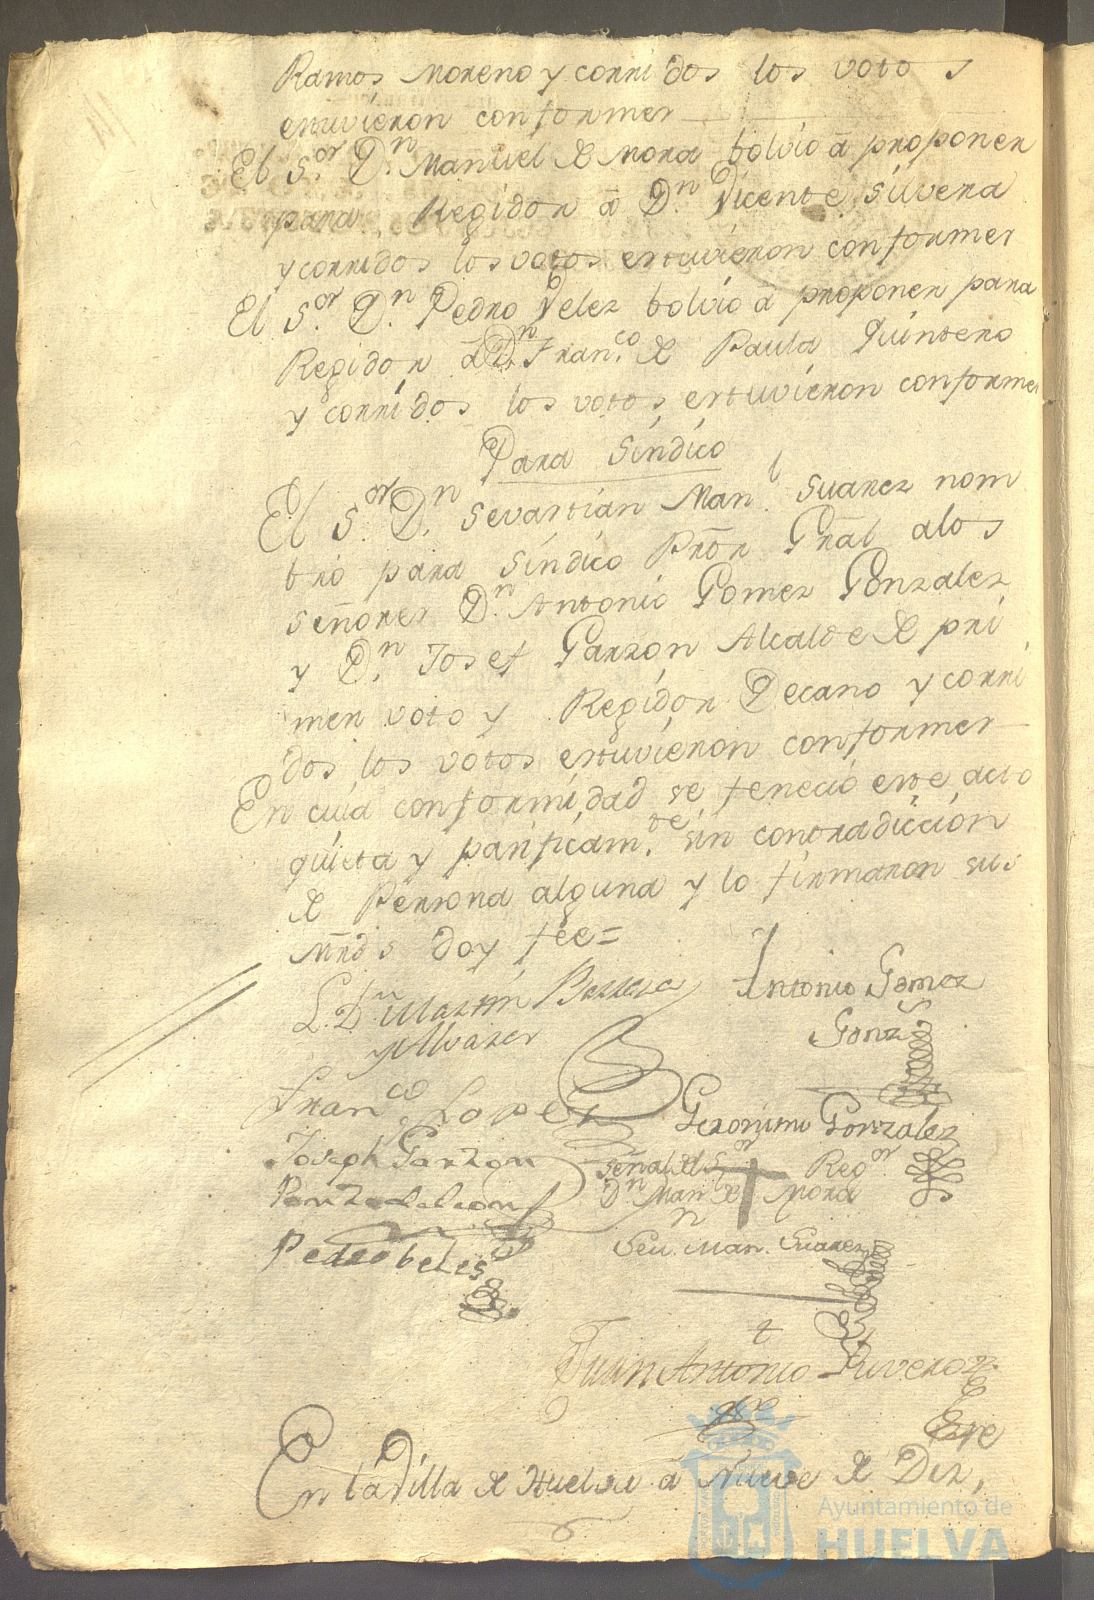 Ramos Moreno y corridos los votos
estuvieron conformes
El S.or D.n Manuel de Mora bolvio â proponer
para Regidor â D.n Vicente Silvera
y corridos los votos estuvieron conformes
El S.or D.n Pedro Velez bolvio â proponer para
Regidor â D.n Fran.co de Paula Quintero
y corridos los votos estuvieron conformes
Para Sindico
El S.or D.n Sevastian Man.l Suarez nom
bro para Sindico Prõr Grãl alos
señores D.n Antonio Gomez Gonzalez
y D.n Josef Garzon Alcalde de pri
mer voto y Regidor Decano y corri
dos los votos estuvieron conformes
En cuia conformidad se feneciò este acto
quieta y pasificam.te sin contradiccion
de Persona alguna y lo firmaron sus
Mrds doy fee=
L. D.n Martin Barrera
y Alvarez
Antonio Gomez
Gonz
Fran.co Lopez
Geronimo Gonzalez
Joseph Garzon
Ponze de leon
Señal del S.or + Reg.or
D.n Man.l de Mora
Pedro beles
Sev.n Man. Suarez
Juan Antonio Riveroz
En la Villa de Huelva â Nueve de Diz,
Ayuntamiento de
HUELVA